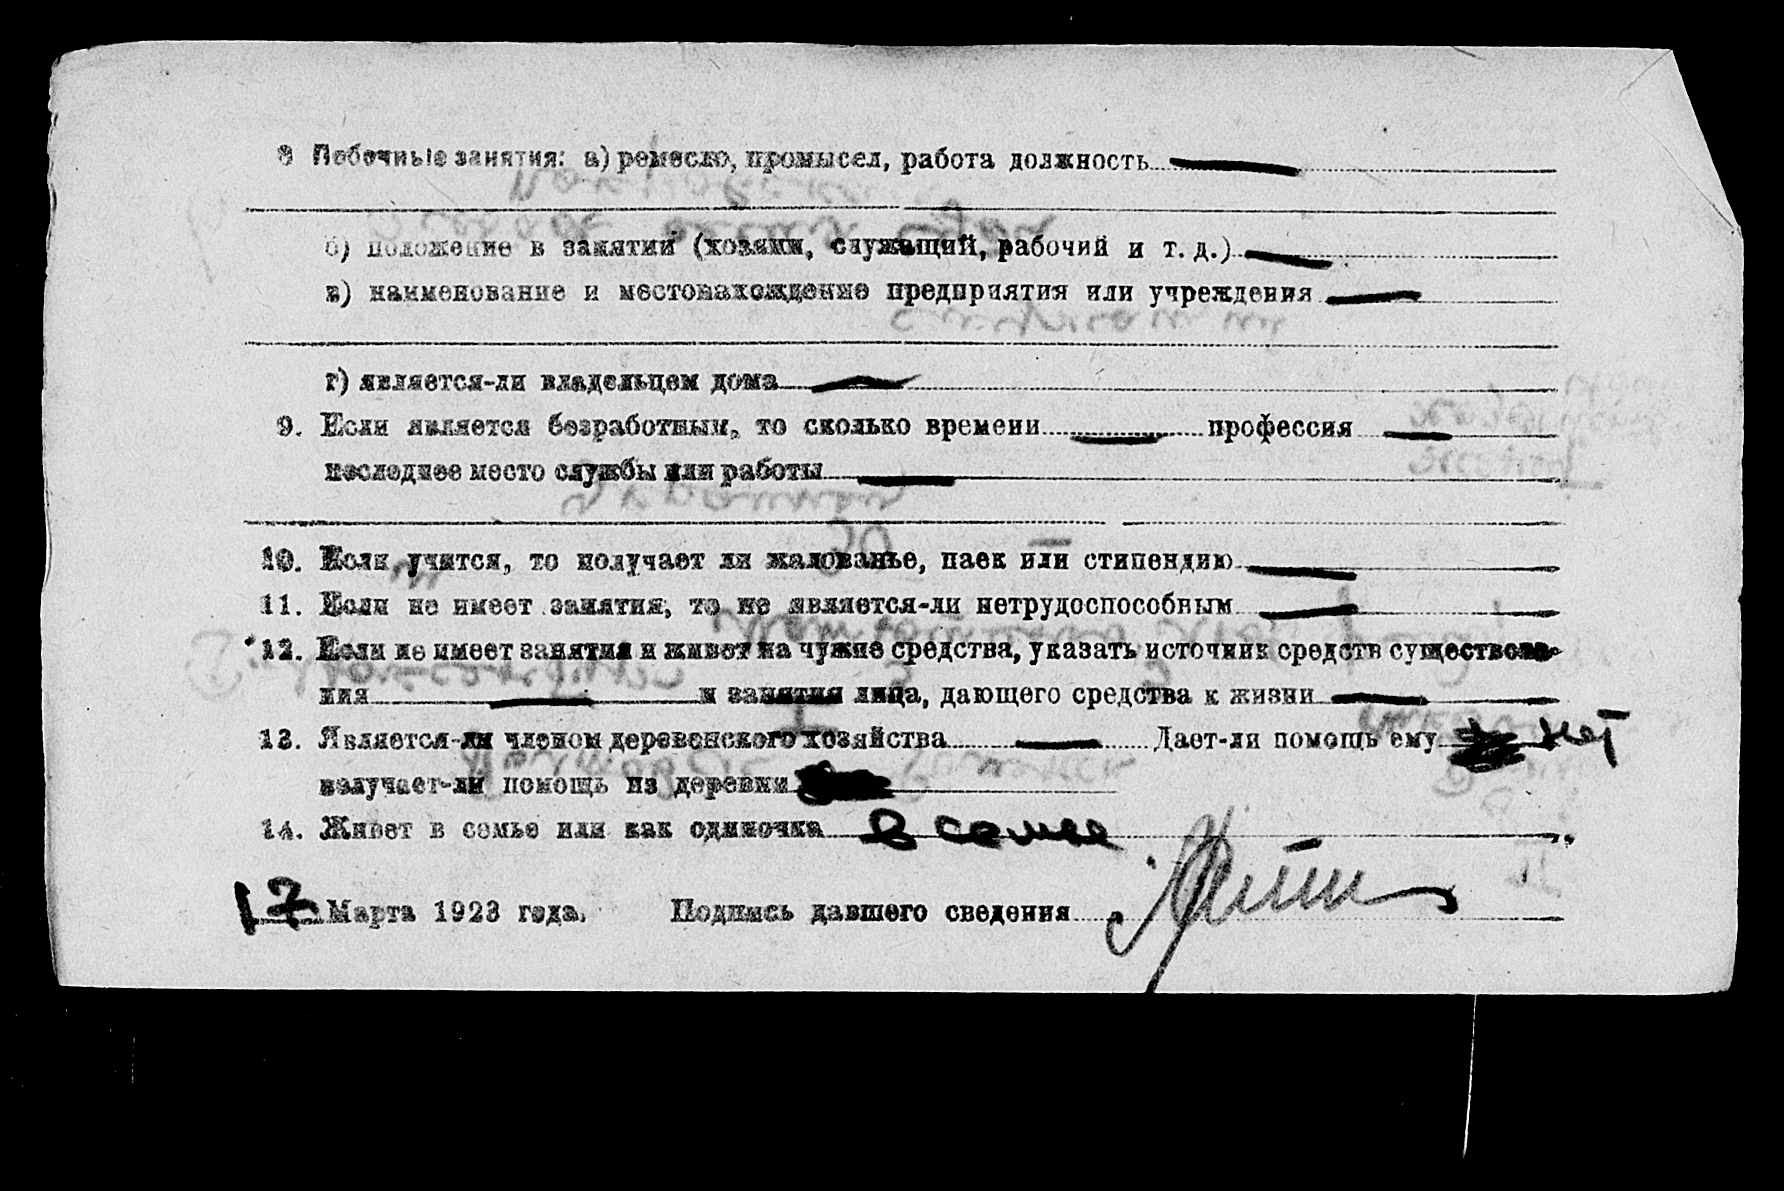 8 Побочные занятия: а) ремесло, промысел, работа должность
б) положение в занятии (хозяин, служащий, рабочий и т. д.)
в) наименование и местонахождение предприятия или учреждения
г) является-ли владельцем дома
9. Если является безработным, то сколько времени профессия
последнее место службы или работы
10. Если учится, то получает ли жалованье, паек или стипендию
11. Если не имеет занятия, то не является-ли нетрудоспособным
12. Если не имеет занятия и живет на чужие средства, указать источник средств существова-
ния и занятия лица, дающего средства к жизни
13. Является-ли членом деревенского хозяйства Дает-ли помощь ему нет
получает-ли помощь из деревни
14. Живет в семье или как одиночка в семье
17 Марта 1923 года. Подпись давшего сведения